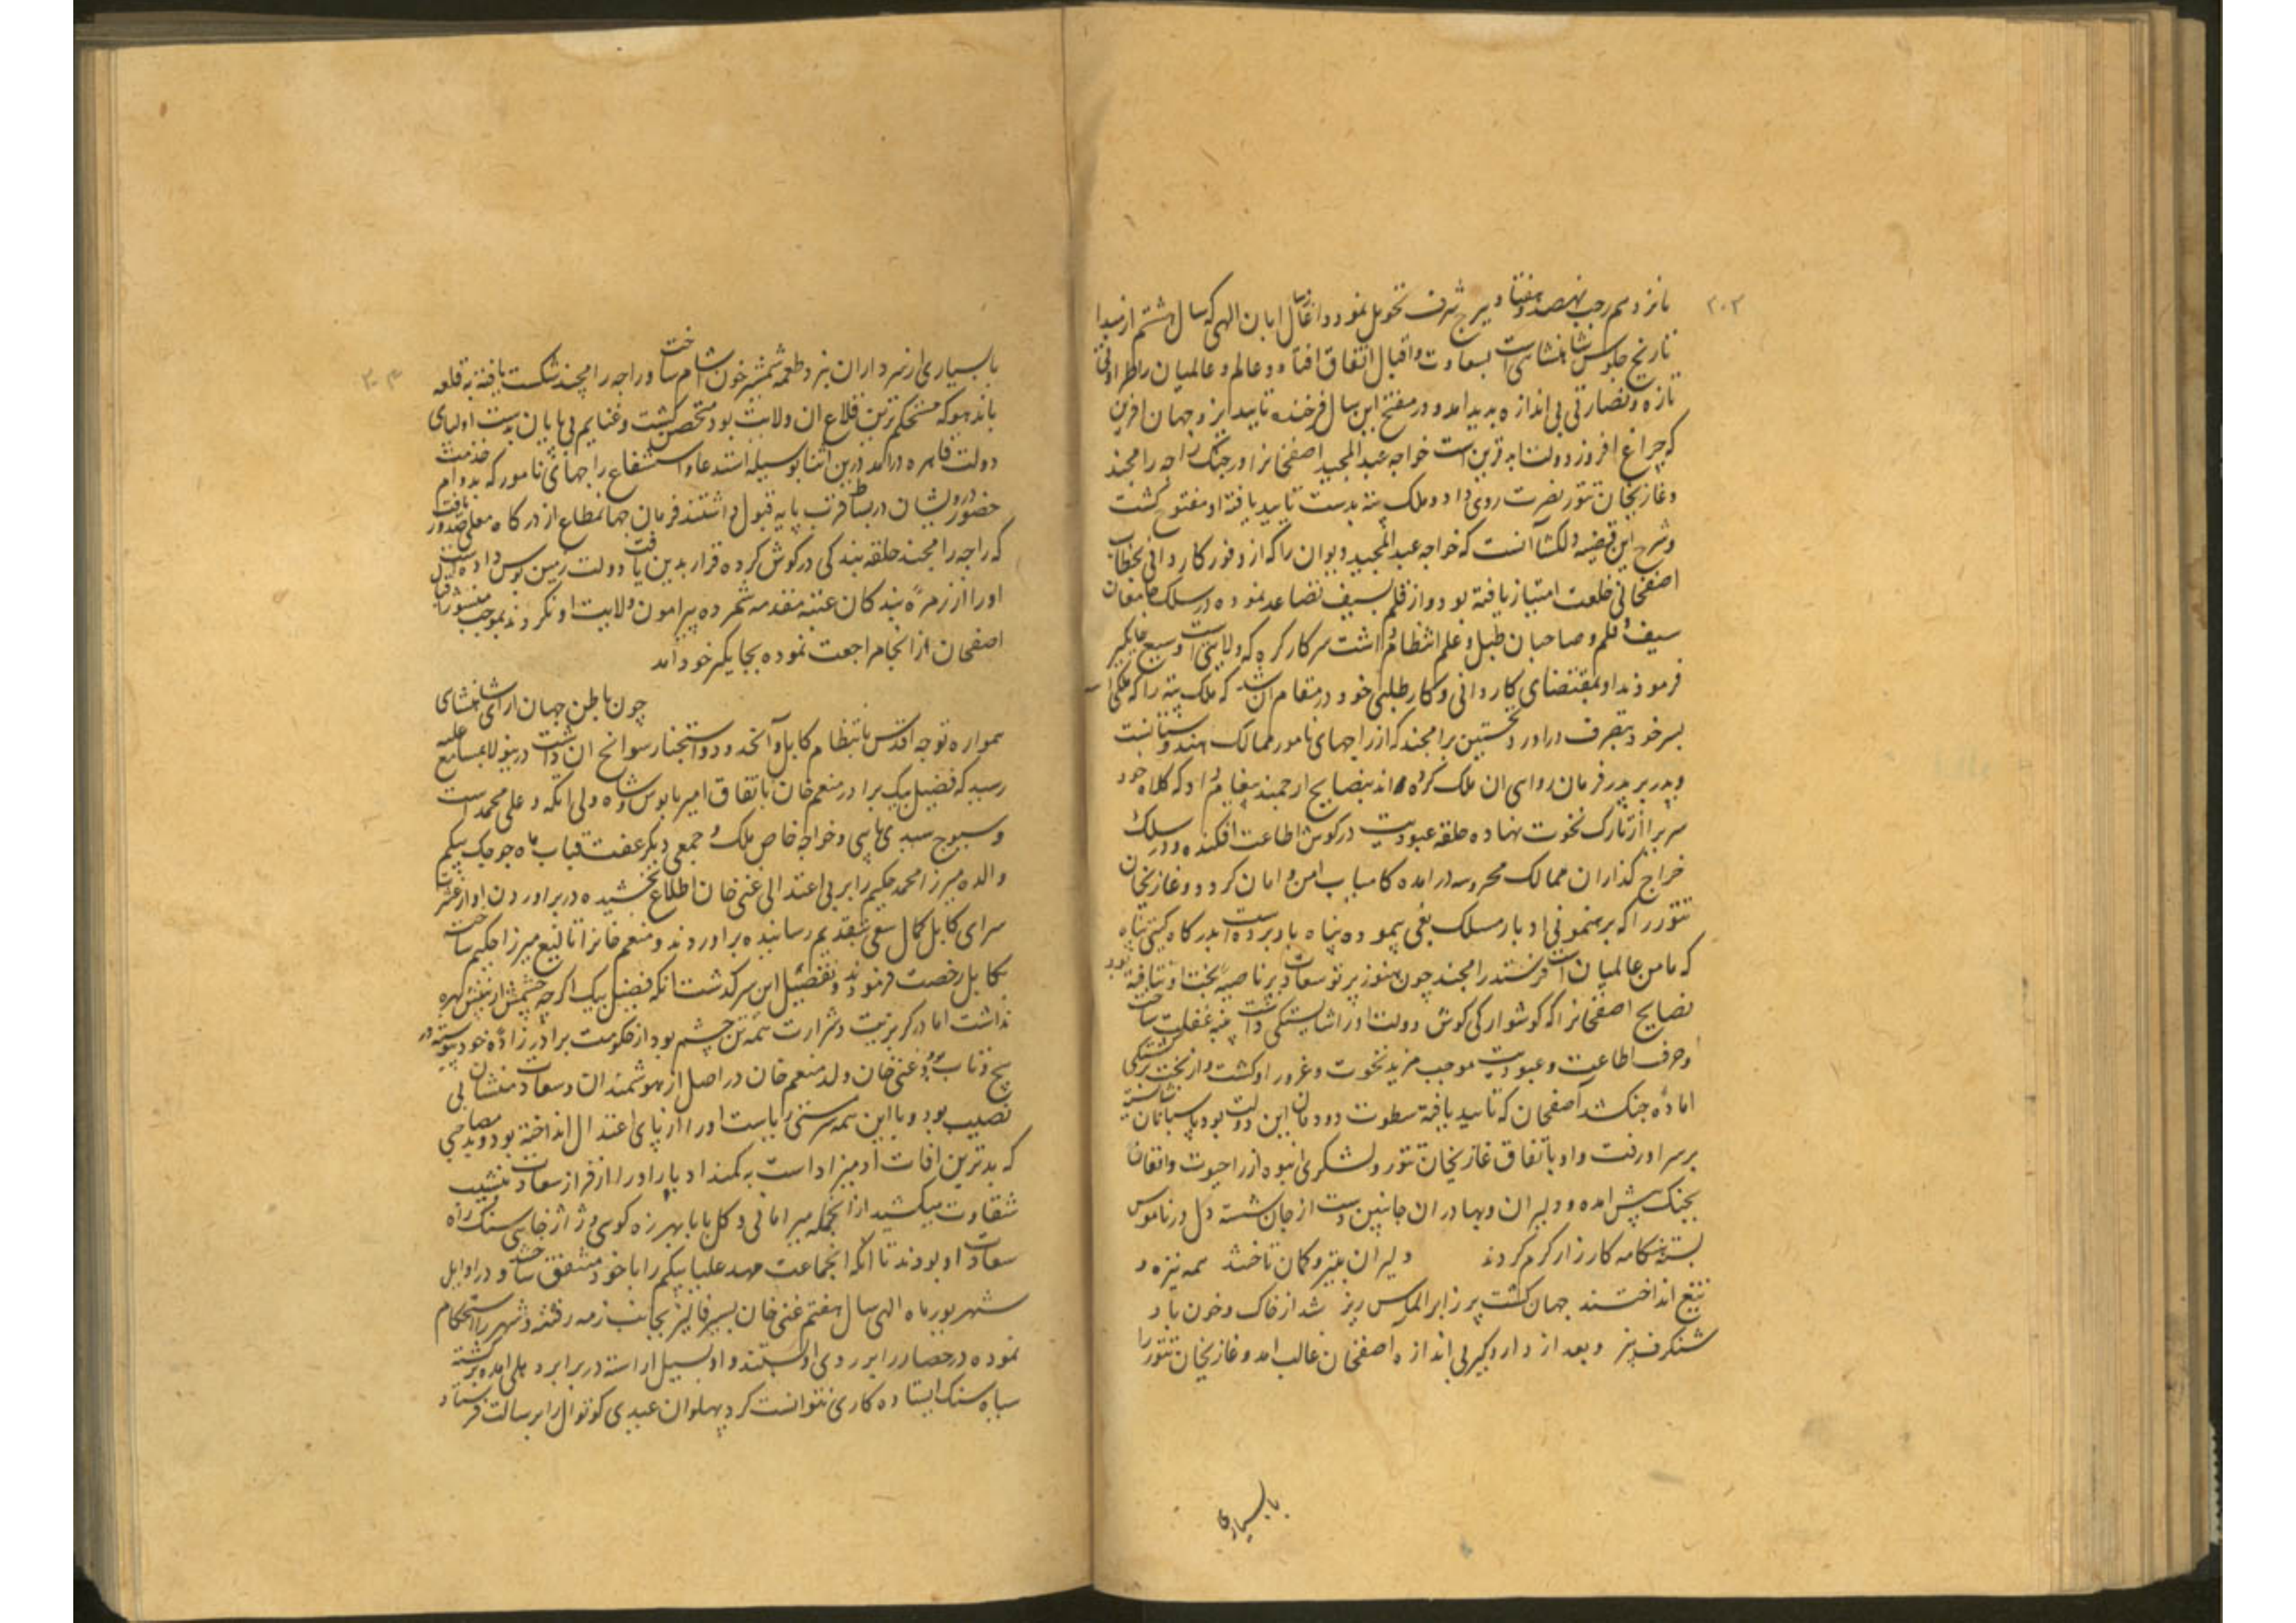 ۲۰۳
پانزدهم رجب نهصد و هفتاد ببرج شرف تحویل نمود و آغاز سال ابان الهی که سال هشتم از مبدا
تاریخ جلوس شاهنشاهی است بسعادت و اقبال اتفاق افتاد و عالم و عالمیان را طراوتی
تازه و نضارتی بی اندازه پدید امد و در مفتتح این سال فرخنده تایید ایزد جهان افرین
که چراغ افروز دولت ابد قرین است خواجه عبدالمجید اصفخانرا در جنگ راجه رامچند
و غازیخان تنور نصرت روی داد و ملک پنه بدست تایید یافته او مفتوح گشت
و شرح این قضیه دلکشا آنست که خواجه عبدالمجید دیوان را که از وفور کاردانی بخطاب
اصفخانی خلعت امتیاز یافته بود و از قلم بسیف تصاعد نموده در سلک جامعان
سیف و قلم و صاحبان طبل و علم انتظام داشت سرکار کره که ولایتی است وسیع جایگیر
فرمودند او بمقتضای کاردانی و کارطلبی خود در مقام ان شد که ملک پنه را که ملکی است
بسر خود بتصرف دراورد نخستین برامچند که از راجهای نامور ممالک هندوستانست
و پدر بر پدر فرمان روای ان ملک کرده اند بنصایح ارجمند پیغام داد که کلاه خود
سری را از تارک نخوت نهاده حلقه عبودیت در گوش اطاعت افکنده و در سلک
خراج گذاران ممالک محروسه درامده کامیاب امن و امان گردد و غازیخان
تنور را که برهنمونی ادبار مسلک بغی پیموده پناه باو برده است بدرگاه گیتی پناه
که مامن عالمیان است فرستد رامچند چون هنوز پرتو سعادت بر ناصیه بخت او نتافته بود
نصایح اصفخانرا که گوشوارگی گوش دولت او را شایستگی داشت پنبه غفلت ساخت
و حرف اطاعت و عبودیت موجب مزید نخوت و غرور او گشت و از بخت برگشتگی
اماده جنگ شد آصفخان که تایید یافته سطوت دودمان این دولت بود با سپاه شایسته
بر سر او رفت و او باتفاق غازیخان تنور و لشکری انبوه از راجپوت و افغان
بجنگ پیش امده و دلیران و بهادران جانبین دست از جان شسته دل در ناموس
بسته هنگامه کارزار گرم کردند دلیران بتیر و کمان تاختند همه نیزه و
تیغ انداختند جهان گشت پر ز ابر الماس ریز شد از خاک و خون باد
شنگرف بیز و بعد از دار و گیر بی اندازه اصفخان غالب امد و غازیخان تنور را
بابسیاری
۲۰۴
بابسیاری از سرداران نبرد طعمه شمشیر خون اشام ساخت و راجه رامچند شکست یافته به قلعه
باندهو که مستحکم ترین قلاع ان ولایت بود متحصن گشت و غنایم بی پایان بدست اولیای
دولت قاهره درامد درین اثنا بوسیله استدعا و استشفاع راجهای نامور که بدوام خدمت
حضور درویشان در بساط قرب پایه قبول داشتند فرمان جهانمطاع از درگاه معلی صدور یافت
که راجه رامچند حلقه بندگی در گوش کرده قرار بدین یافت دولت زمین بوس
او را از زمره بندگان عتبه مقدسه شمرده پیرامون ولایت او نگردند بموجب منشور
اصفخان از انجا مراجعت نموده بجایگیر خود آمد
چون باطن جهان ارای شاهنشاهی
همواره توجه اقدس بانتظام کابل و آنحدود و استخبار سوانح ان داشت درینولا بمسامع علیه
رسید که فضیل بیک برادر منعم خان باتفاق امیر بابوس و شاه ولی اتکه و علی محمد اسپ
و سیوج سیدی و خواجه خاص ملک و جمعی دیگر عفت قباب ماه جوجک بیگم
والده میرزا محمد حکیم را بر بی اعتدالی غنی خان اطلاع بخشیده در براوردن او از عشرت
سرای کابل کمال سعی بتقدیم رسانیده براوردند و منعم خانرا اتالیغ میرزا حکیم ساخته
بکابل رخصت فرمودند و تفصیل این سرگذشت انکه فضیل بیک اگرچه چشمش از بینش بهره
نداشت اما در گربزیت و شرارت همه تن چشم بود از حکومت برادر زاده خود پیوسته در
پیچ و تاب بود و غنی خان ولد منعم خان در اصل از هوشمندان و سعادت منشان بی
نصیب بود و با این همه سرمستی ریاست او را از پای اعتدال انداخته بود و بد مصاحبی
که بدترین افات آدمیزاد است به کمند ادبار او را از فراز سعادت بنشیب
شقاوت میکشید از انجمله میر امانی و کل بابا بهرزه گوی و ژاژ خایی سنگ راه
سعادت او بودند تا انکه انجماعت مهد علیا بیگم را با خود متفق ساخته در اوایل
شهریور ماه الهی سال هفتم غنی خان بسیر فالیز بجانب زمه رفته و شهر را استحکام
نموده در حصار را بر روی او بستند و او بسیل اراسته در برابر دهلی امده برپشته
سیاه سنگ ایستاده کاری نتوانست کرد پهلوان عیدی کوتوال را برسالت فرستاد